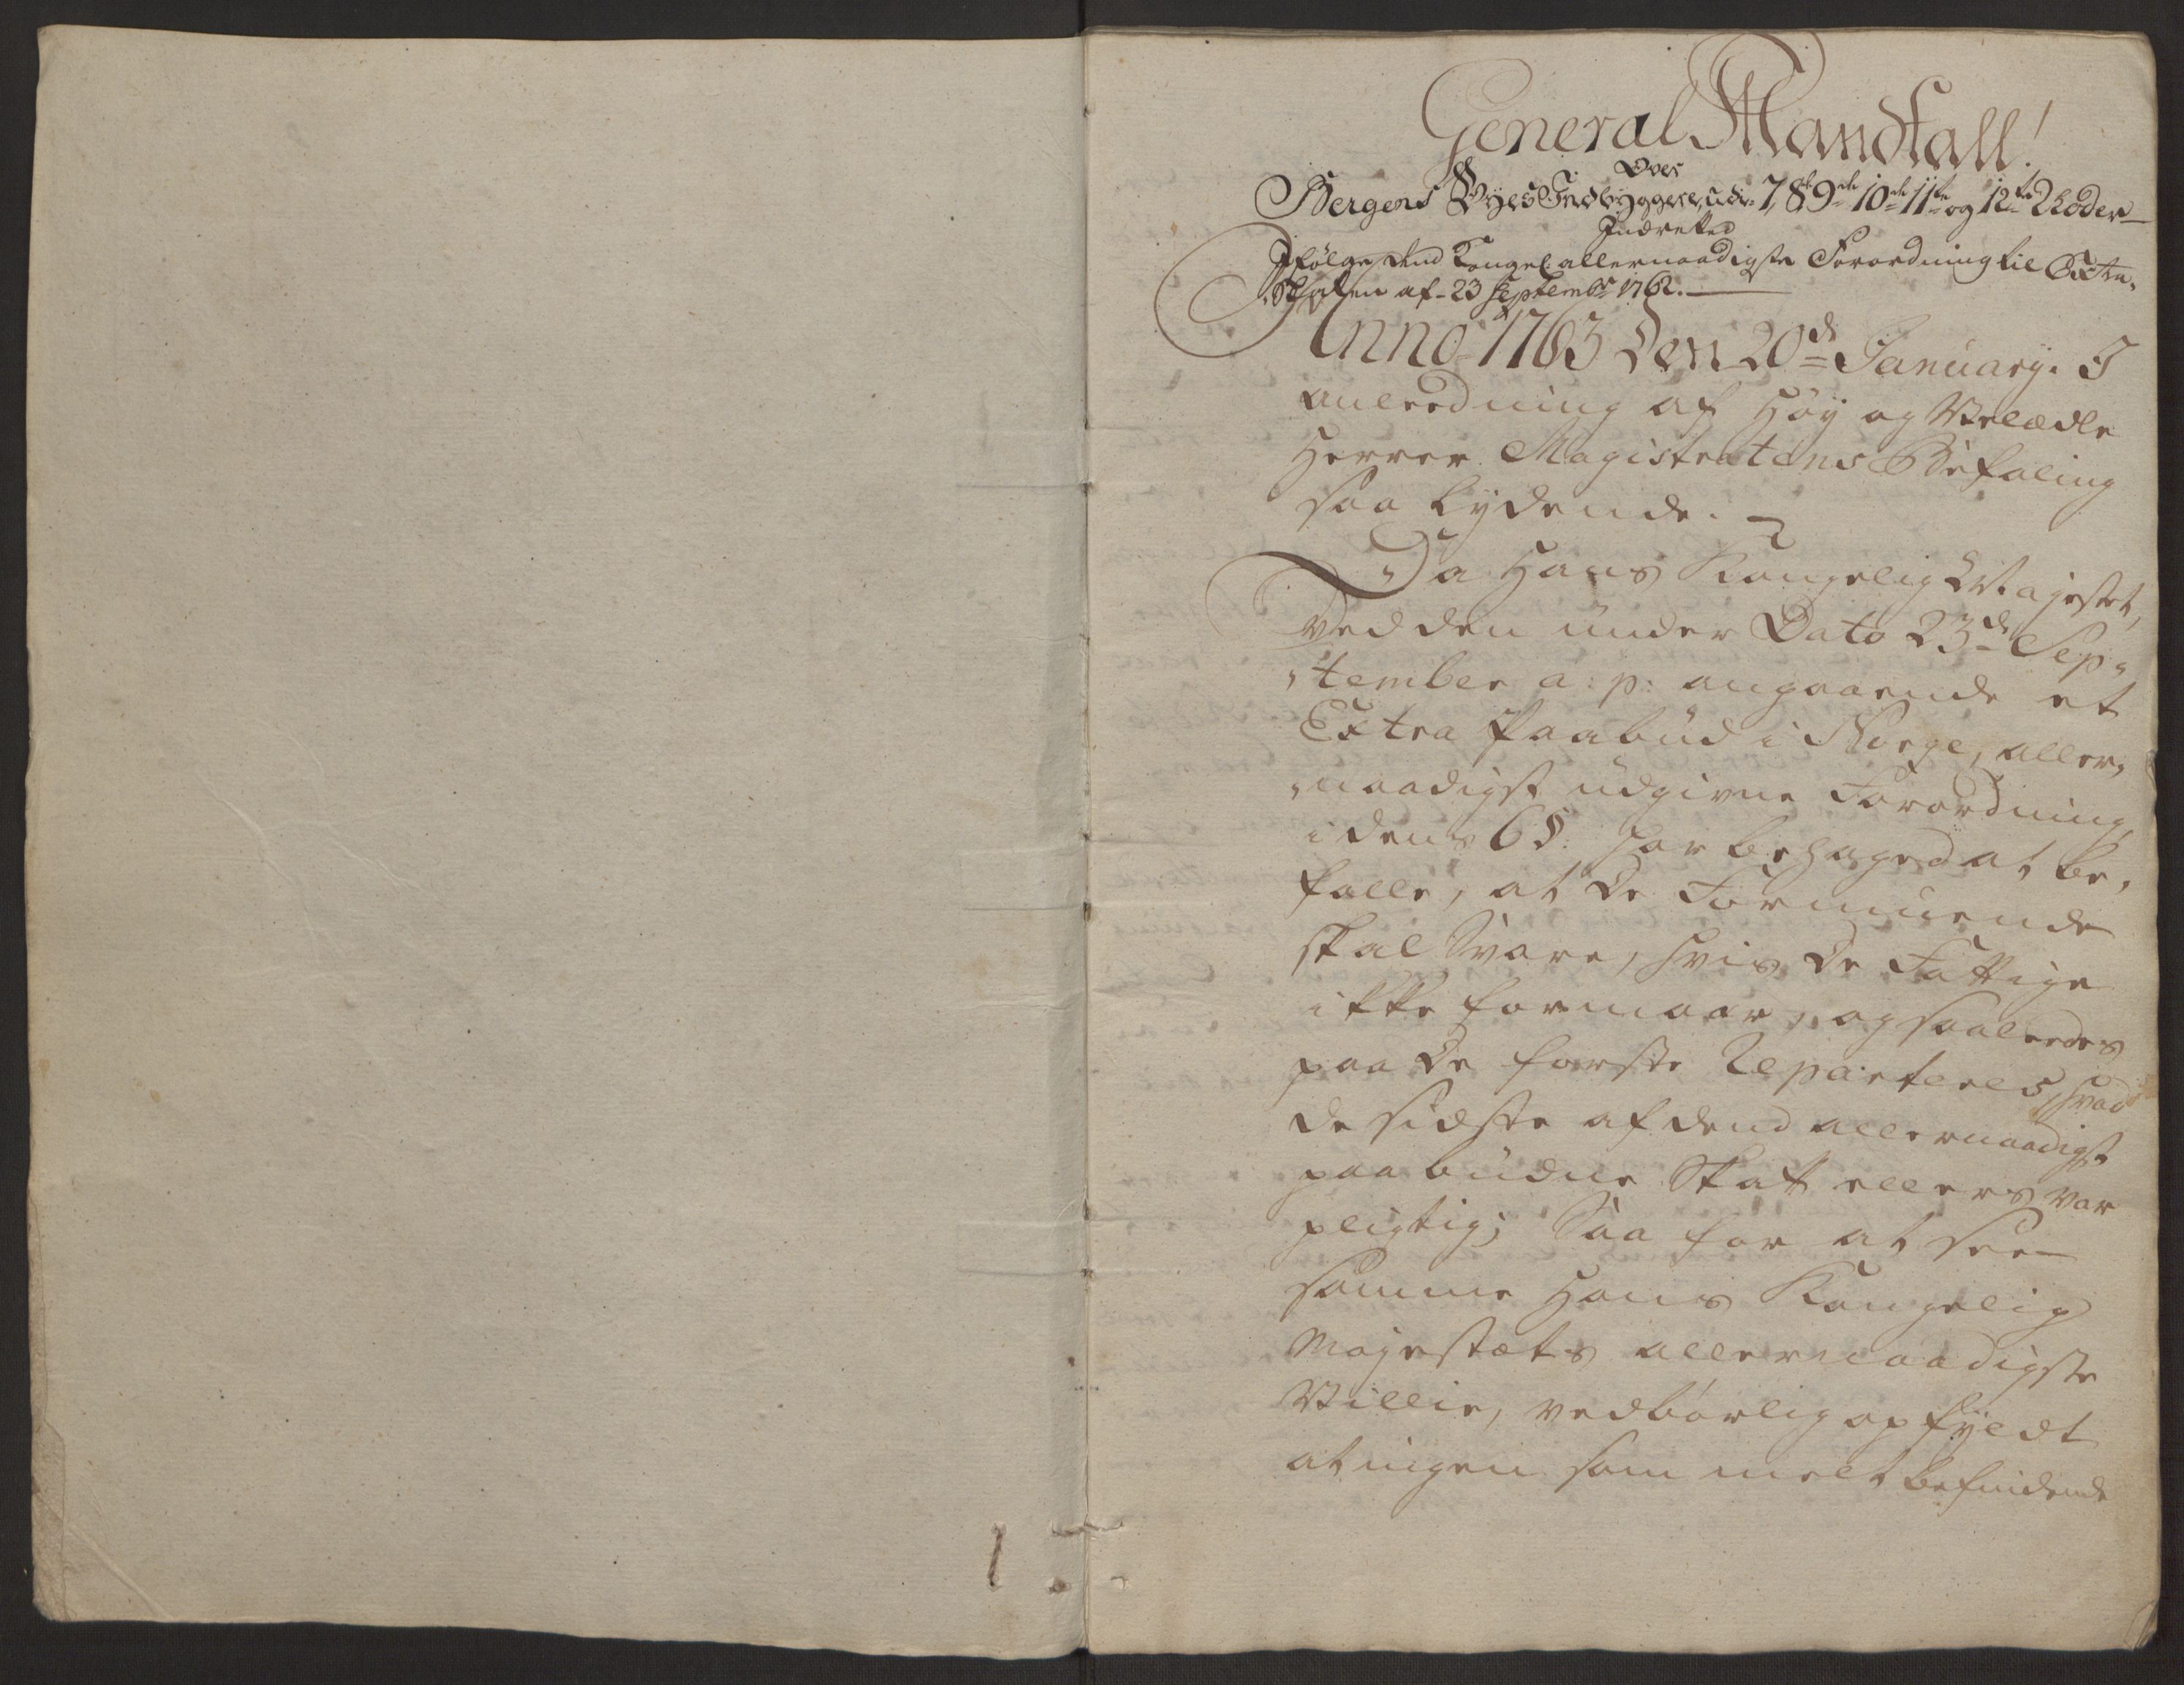 General Mandtall!
Over
Bergens Byes Indbyggere, udi 7, 8de 9de 10de 11te og 12te Roder
Indretted
Ifølge dend Kongel: allernaadigste Forordning til Extra-
Skatten af 23 Septembr 1762.
Anno 1763 Den 20de January. I
anleedning af Høy og Velædle
Herrer Magistratens Befaling
saa lydende.
Da Hans Kongelig Majestet,
ved den under Dato 23de Sep-
tember a: p: angaaende et
Extra Paabud i Norge, aller-
naadigst udgivne Forordning,
i dens 6 §: har behaget at be-
falle, at de Formuende
skal svare, hvis de Fattige
ikke formaar, og saaleedes
paa de første Reparteres, hvad
de sidste af dend allernaadigst
paabudne Skatt ellers var
pligtig; Saa for at see
samme Hans Kongelig
Majestæts allernaadigste
Villie, vedbørlig opfyldt
at ingen som melt befindende